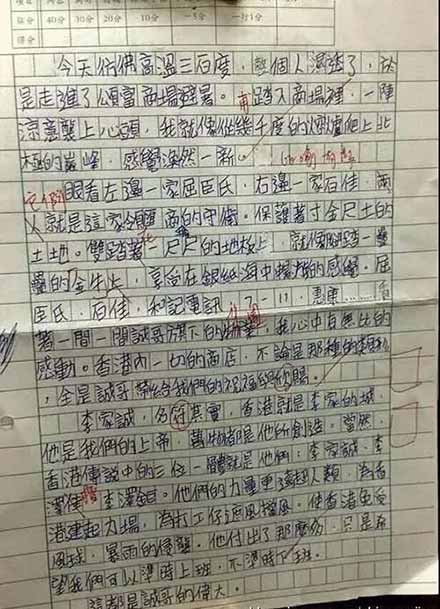 得分 40分 30分 20分 10分
今天彷彿高溫三百度，整個人濕透了，於
是走進了頌富商場避暑。再踏入商場裡，一陣
涼意襲上心頭，我就像從幾千度的火爐爬上北
極的巔峰，感覺煥然一新。
眼看左邊一家屈臣氏，右邊一家百佳，兩
人就是這家領匯商的守衛。保護著寸金尺土的
土地。雙踏著一尺尺的地板上，就像腳踏一疊
疊的金牛上，享受在銀紙海中揚的感覺。屈
臣氏，百佳，和記電訊，7-11，惠康……看
著一間一間誠哥旗下的，我心中自然生的
感動。香港內一切的商店，不論是那種的
，全是誠哥帶給我們的祝福與欣賜。
李家誠，名符其實，香港就是李家的城，
他是我們的上帝，萬物都是他所創造。當然，
香港傳說中的三位一體就是他們：李家誠、李
澤楷、李澤鉅。他們的力量更遠超人類，為香
港建起力場，為打工仔遮風擋風，使香港免受
風球、暴雨的侵襲。他付出了那麼多，只是希
望我們可以準時上班，不準時下班。
這都是誠哥的偉大。